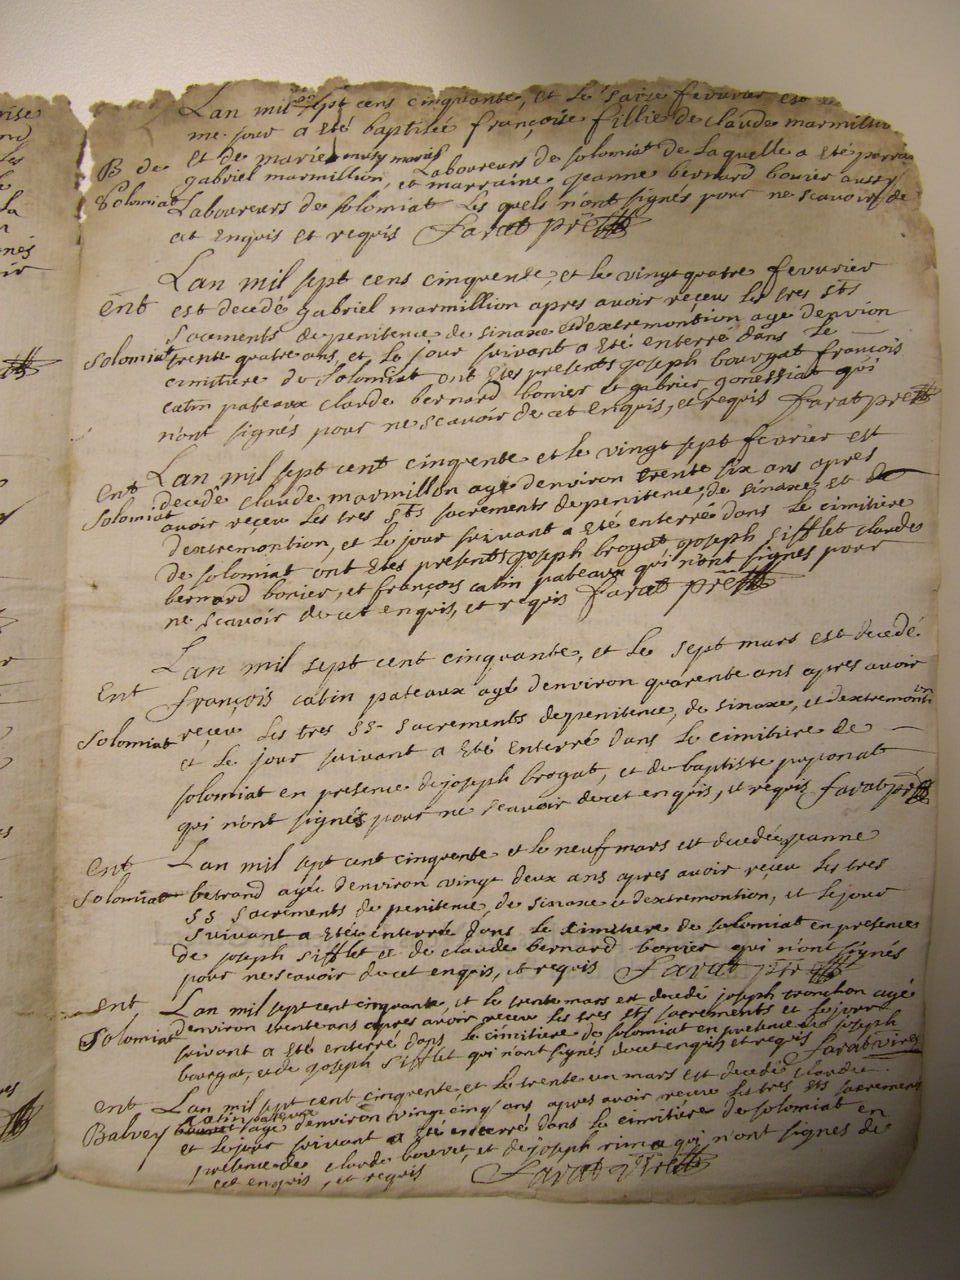 Lan mil sept cens cinquante, et le saize fevurier est
me jour a eté baptisée françoise fillie de claude marmillion
B de et de marie musy mariés Laboureurs de solomiat de Laquelle a eté parrain
Solomiat gabriel marmillion, et marraine jeanne bernard bonier aussy
Laboureurs de solomiat Les quels n'ont signés pour ne scavoir de
cet enquis et requis farat prê
Lan mil sept cens cinquente, et le vingt quatre fevurier
Ent est decedé gabriel marmillion apres avoir reçeu les tres sts
sacements de penitence de sinaxe d'extremontion agé denvion
Solomiat trente quatre ans, et Le jour suivant a eté enterré dans Le
cimitiere de Solomiat ont etes presents joseph bourgat françois
catin pateaux claude bernard bonier et gabriel gonessiat qui
n'ont signés pour ne scavoir de cet enquis, et requis farat prê
Lan mil sept cent cinqvente et le vingt sept fevrier est
Ent decedé claude marmillon agé denviron trente six ans apres
Solomiat avoir reçeu les tres sts sacrements de penitence, de sinaxe, et de
dextremontion, et le jour suivant a eté enterré dans le cimitiere
de solomiat ont etes presents joseph brogat joseph sifflet claude
bernard bonier, et françois catin pateaux qui n'ont signes pour
ne scavoir de cet enquis, et requis farat prê
Lan mil sept cent cinquante, et le sept mars est decedé
Ent françois catin pateaux agé denviron quarente ans apres avoir
Solomiat reçeu les tres ss sacrements de penitence, de sinaxe, et dextremontion
et le jour suivant a eté enterré dans le cimitiere de
solomiat en presence de joseph brogat, et de baptiste
qui n'ont signés pour ne scavoir de cet enquis, et requis farat prê
Ent Lan mil sept cent cinquente et le neuf mars est decedée jeanne
Solomiat betrand agée denviron vingt deux ans apres avoir reçeu les tres
ss sacrements de penitence, de sinaxe et dextremontion, et le jour
suivant a etée enterrée dans le cimitiere de solomiat en presence
de joseph sifflet et de claude bernard bonier qui n'ont signés
pour ne scavoir de cet enquis, et requis farat prê
Ent Lan mil sept cent cinquante, et le trente mars est decedé joseph tronchon agé
Solomiat denviron trente ans apres avoir receu les tres sts sacrements et le jour
suivant a eté enterré dans le cimitiere de solomiat en presence de joseph
bourgat, et de joseph sifflet qui n'ont signés de cet enquis et requis farat vire
Ent Lan mil sept cent cinquente, et le trente un mars est decedé claude
catin pateaux
Balvey agé denviron vingt cinq ans apres avoir receu les tres sts sacrements
et le jour suivant a eté enterré dans le cimitiere de solomiat en
presence de claude bouvet, et de joseph rima qui n'ont signes de
cet enquis, et requis farat vire